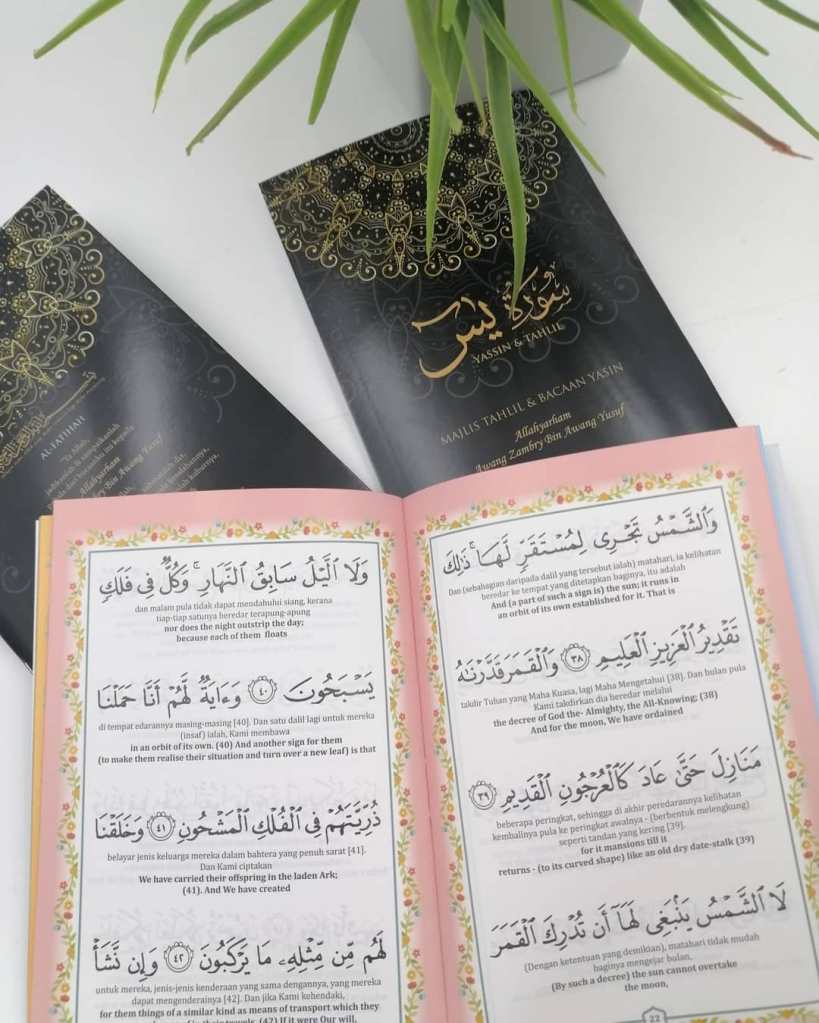 سورة يس
YASSIN & TAHLIL
MAJLIS TAHLIL & BACAAN YASIN
Allahyarham
Awang Zambry Bin Awang Yusuf
AL-FATIHAH
Ya Allah,
Allahyarham
Awang Zambry Bin Awang Yusuf
وَٱلشَّمْسُ تَجْرِى لِمُسْتَقَرٍّ لَّهَا ۚ ذَٰلِكَ
Dan (sebahagian daripada dalil yang tersebut ialah) matahari, ia kelihatan
beredar ke tempat yang ditetapkan baginya, itu adalah
And (a part of such a sign is) the sun; it runs in
an orbit of its own established for it. That is
تَقْدِيرُ ٱلْعَزِيزِ ٱلْعَلِيمِ ٣٨ وَٱلْقَمَرَ قَدَّرْنَٰهُ
takdir Tuhan yang Maha Kuasa, lagi Maha Mengetahui [38]. Dan bulan pula
Kami takdirkan dia beredar melalui
the decree of God the- Almighty, the All-Knowing; (38)
And for the moon, We have ordained
مَنَازِلَ حَتَّىٰ عَادَ كَٱلْعُرْجُونِ ٱلْقَدِيمِ ٣٩
beberapa peringkat, sehingga di akhir peredarannya kelihatan
kembalinya pula ke peringkat awalnya - (berbentuk melengkung)
seperti tandan yang kering [39].
for it mansions till it
returns - (to its curved shape) like an old dry date-stalk (39)
لَا ٱلشَّمْسُ يَنۢبَغِى لَهَآ أَن تُدْرِكَ ٱلْقَمَرَ
(Dengan ketentuan yang demikian), matahari tidak mudah
baginya mengejar bulan,
(By such a decree) the sun cannot overtake
the moon,
22
وَلَا ٱلَّيْلُ سَابِقُ ٱلنَّهَارِ ۚ وَكُلٌّ فِى فَلَكٍ
dan malam pula tidak dapat mendahuhi siang, kerana
tiap-tiap satunya beredar terapung-apung
nor does the night outstrip the day;
because each of them floats
يَسْبَحُونَ ٤٠ وَءَايَةٌ لَّهُمْ أَنَّا حَمَلْنَا
di tempat edarannya masing-masing [40]. Dan satu dalil lagi untuk mereka
(insaf) ialah, Kami membawa
in an orbit of its own. (40) And another sign for them
(to make them realise their situation and turn over a new leaf) is that
ذُرِّيَّتَهُمْ فِى ٱلْفُلْكِ ٱلْمَشْحُونِ ٤١ وَخَلَقْنَا
belayar jenis keluarga mereka dalam bahtera yang penuh sarat [41].
Dan Kami ciptakan
We have carried their offspring in the laden Ark;
(41). And We have created
لَهُم مِّن مِّثْلِهِۦ مَا يَرْكَبُونَ ٤٢ وَإِن نَّشَأْ
untuk mereka, jenis-jenis kenderaan yang sama dengannya, yang mereka
dapat mengenderainya [42]. Dan jika Kami kehendaki,
for them things of a similar kind as means of transport which they
(42) If it were Our will,